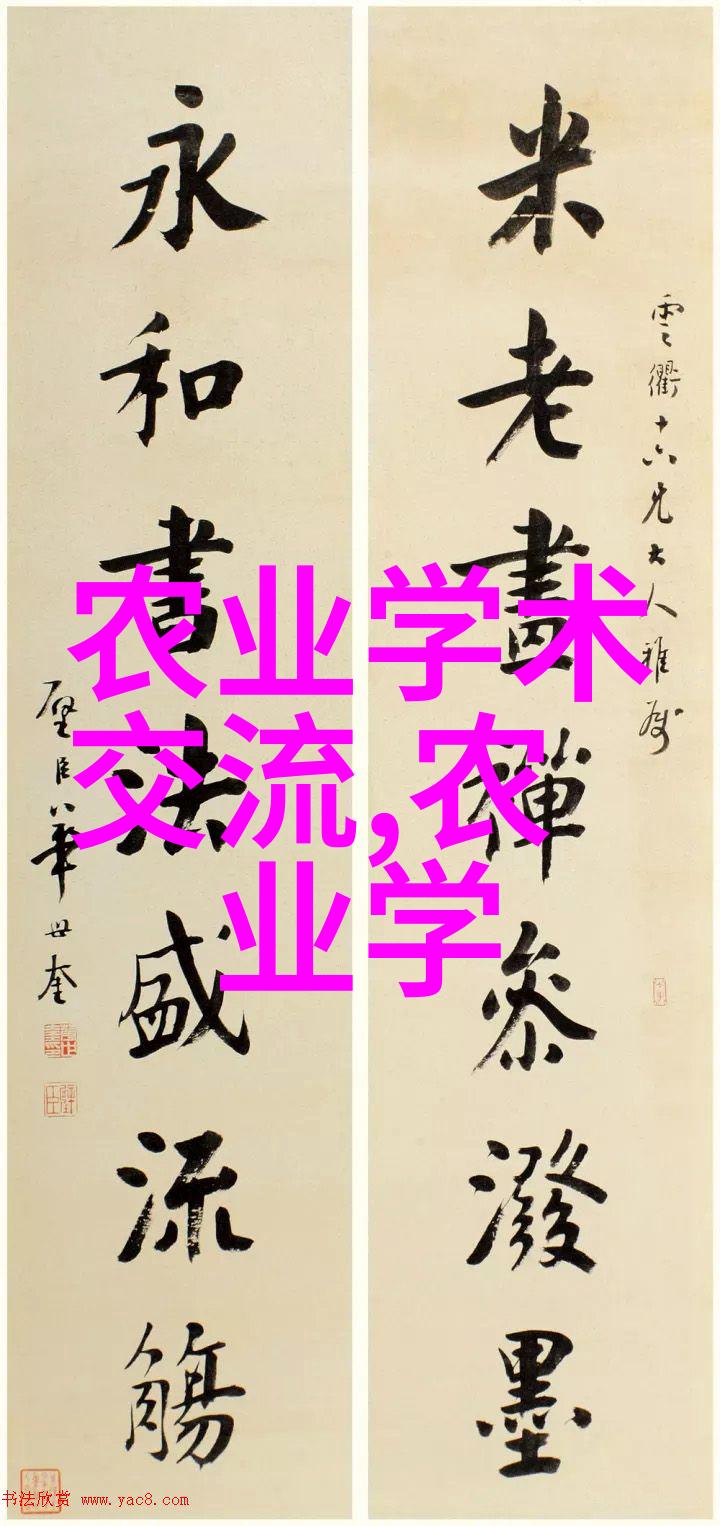 米老畫禪參潑墨
雲衢十六兄大人雅屬
永和書法盛流觴
璧臣華世奎
农业学术
交流,农
业学
书法欣赏 www.yac8.com